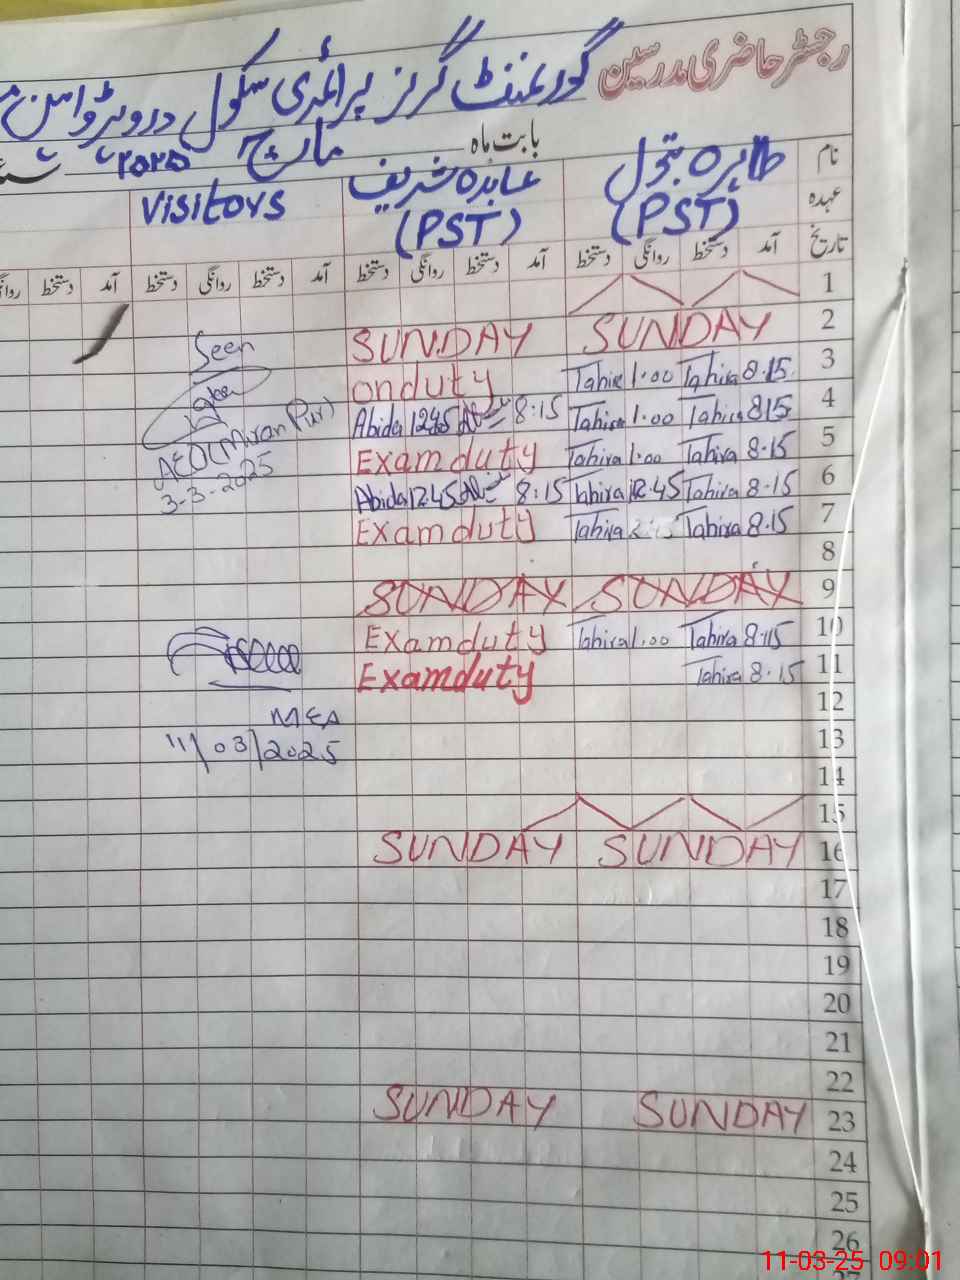 رجسٹر حاضری مدرسین
گورنمنٹ گرلز پرائمری سکول
بابت ماہ مارچ ۲۰۲۵
نام طاہرہ بتول عابدہ شریف Visitors
عہدہ (PST) (PST)
تاریخ آمد دستخط روانگی دستخط آمد دستخط روانگی دستخط آمد دستخط روانگی دستخط آمد دستخط
1
SUNDAY SUNDAY 2
Seen
onduty Tahira 1.00 Tahira 8.15 3
Abida 12:45 8:15 Tahira 1.00 Tahira 815 4
AEO (Miran Pur)
Examduty Tahira 1.00 Tahira 8.15 5
3-3-2025
Abida 12.45 8:15 Tahira 12.45 Tahira 8.15 6
Examduty Tahira Tahira 8.15 7
8
SUNDAY SUNDAY 9
Examduty Tahira 1.00 Tahira 8.15 10
Examduty Tahira 8.15 11
MEA 12
11/03/2025 13
14
15
SUNDAY SUNDAY 16
17
18
19
20
21
22
SUNDAY SUNDAY 23
24
25
26
11-03-25 09:01